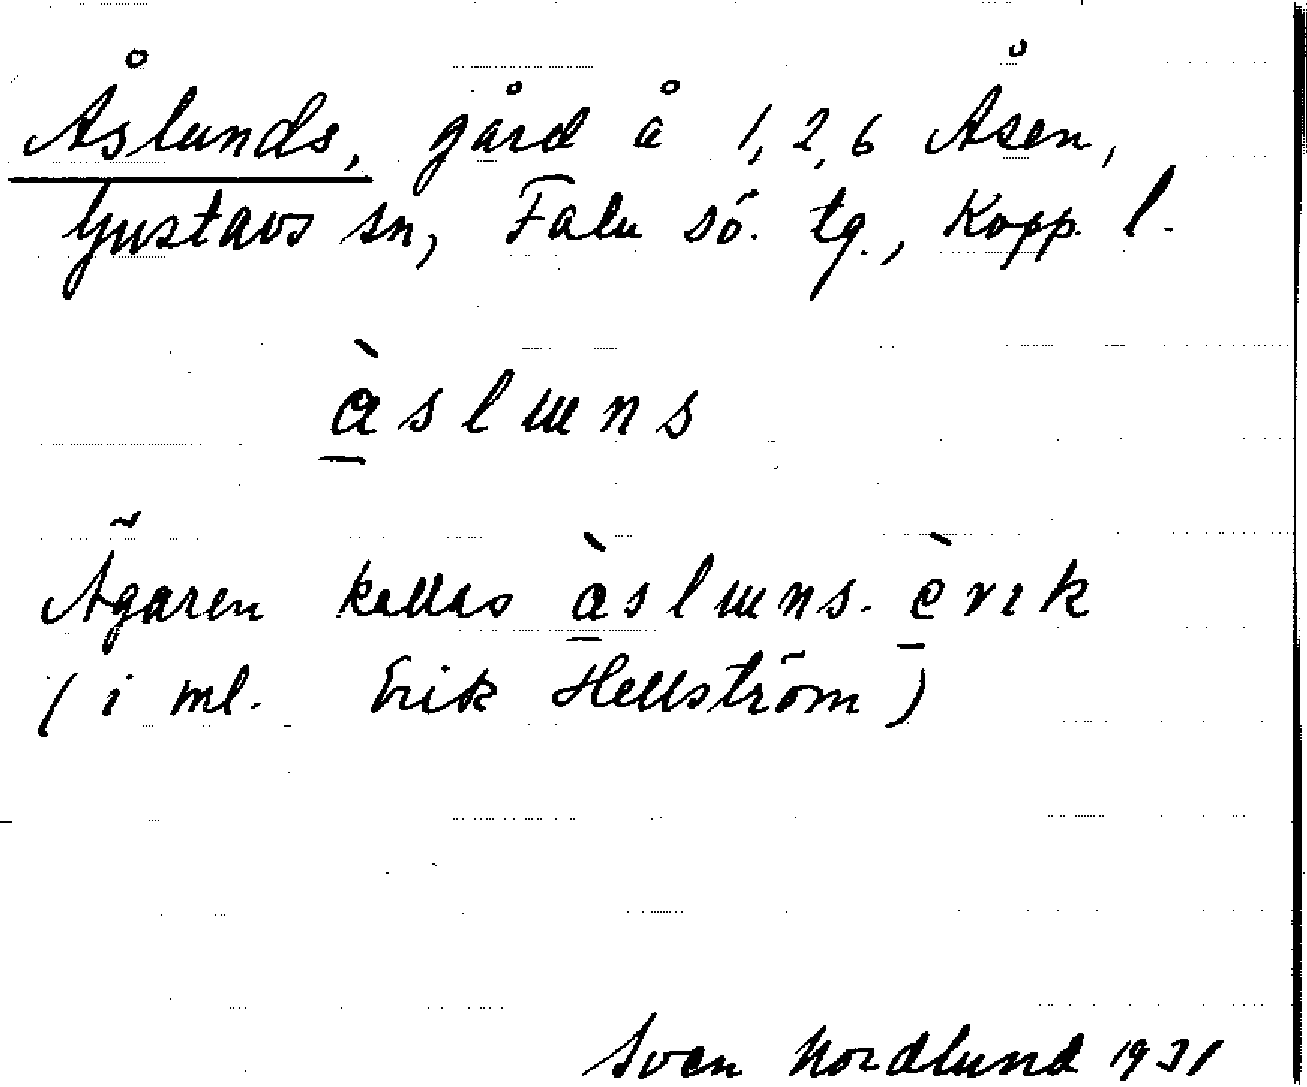 Åslunds, gård å 1, 2, 6 Åsen,
Gustavs sn, Falu sö. tg., Kopp. l.
àslɯns
Ägaren kallas àslɯns-èrɪk
(i ml. Erik Hellström)
Sven Nordlund 1931